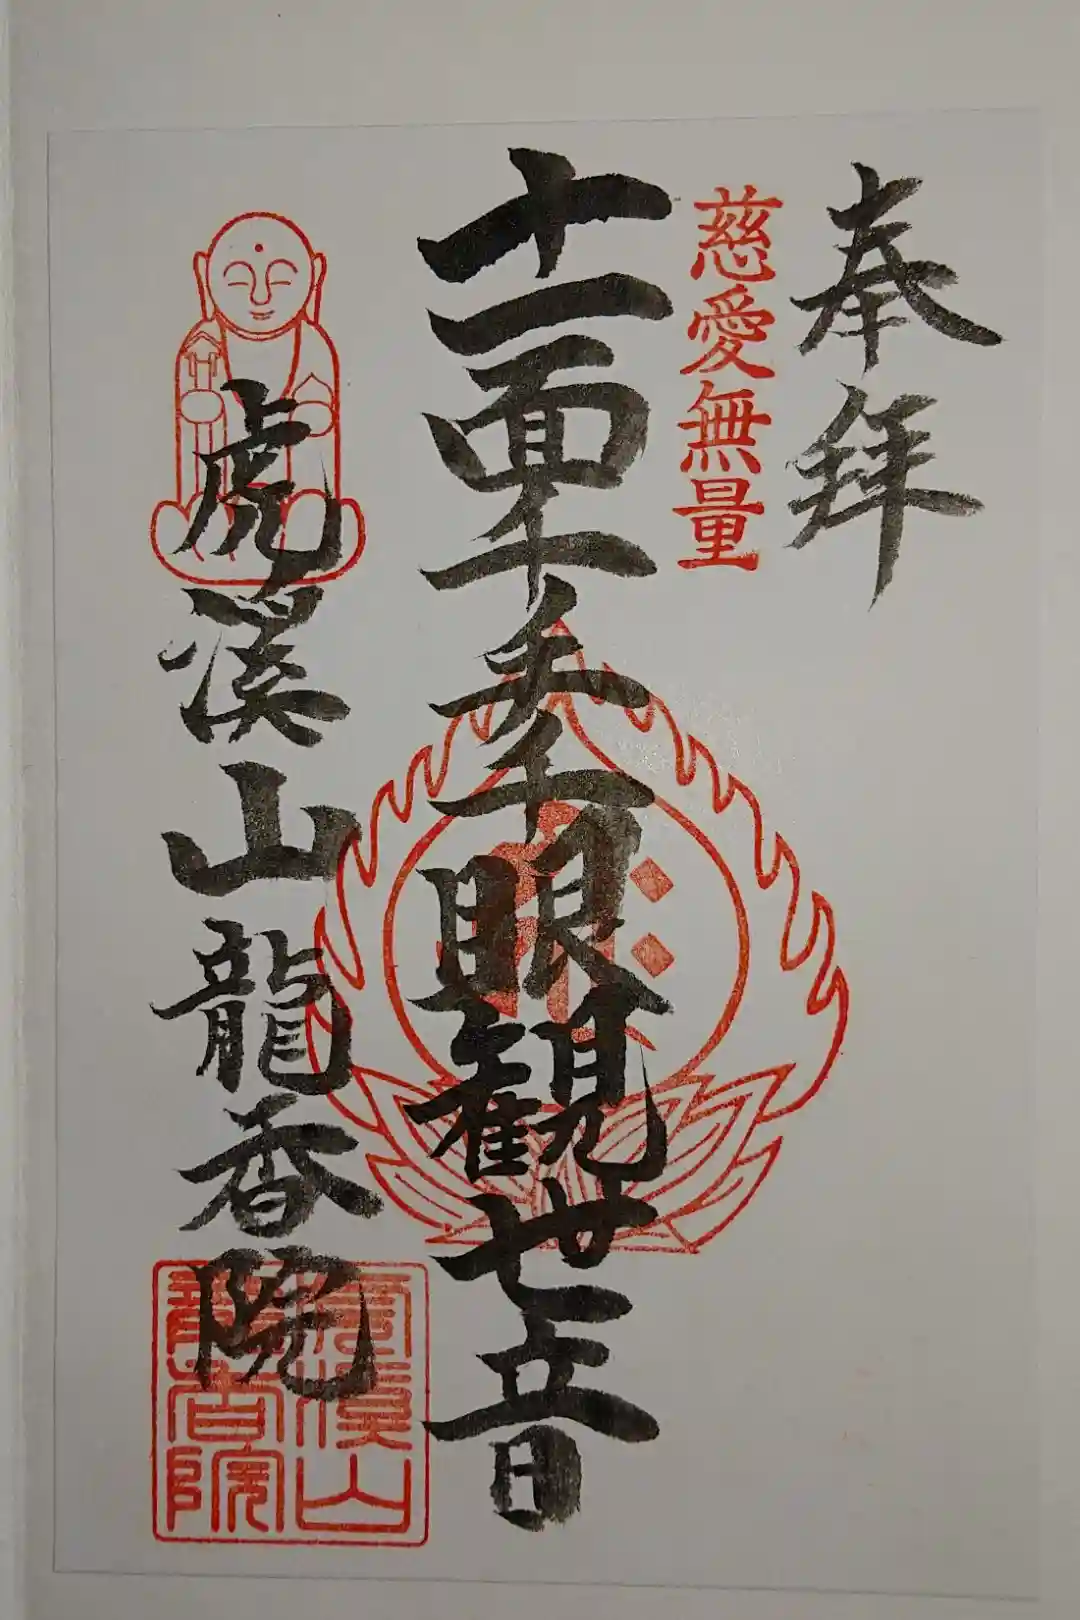 奉拝
慈愛無量
十一面千手千眼観世音
虎溪山龍香院
虎溪山
龍香院